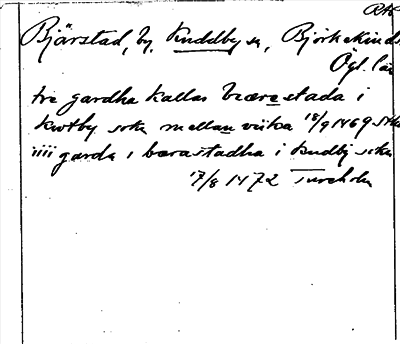 RAP
Bjärstad, by, Kuddby sn, Björkekinds
Ögl. län
tre gardha kallas bærestada i
kwtby sokn mellan wiika 18/9 1469 Sthlm
iiii garda i bærastadha i kudby sokn
17/8 1472 Tureholm